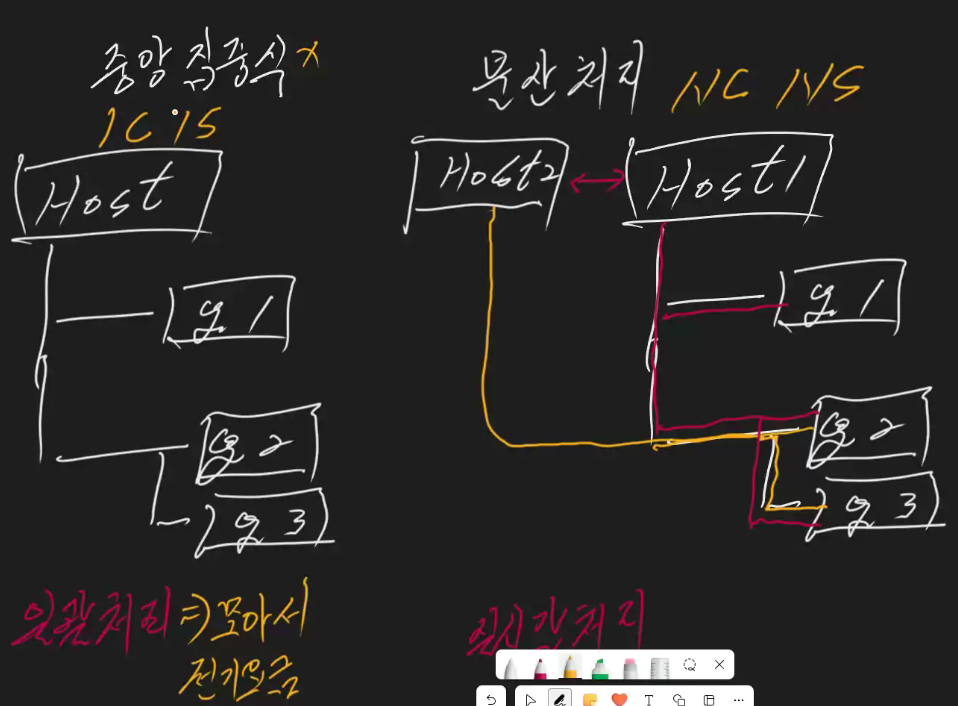 중앙 집중식 x
1C 1S
Host
g 1
g 2
g 3
일괄처리 => 모아서
전기요금
분산처리 NC NS
Host2 ↔ Host1
g 1
g 2
g 3
실시간처리
T